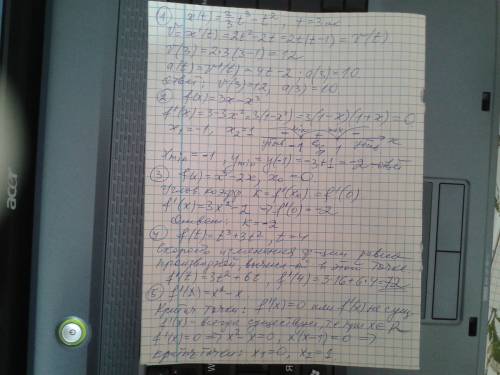 ① x(t) = 2/3 t³ - t², t = 3 с
V = x'(t) = 2t² - 2t = 2t(t-1) = v(t)
V(3) = 2·3(3-1) = 12
a(t) = v'(t) = 4t - 2; a(3) = 10
Ответ: V(3) = 12, a(3) = 10
② f(x) = 3x - x³
f'(x) = 3 - 3x² = 3(1-x²) = 3(1-x)(1+x) = 0
x₁ = -1, x₂ = 1
- min + max - x
-1 1
x min = -1, y min = y(-1) = -3+1 = -2 - ответ
③ f(x) = x³ - 2x, x₀ = 0
Углов. коэфф. k = f'(x₀) = f'(0)
f'(x) = 3x² - 2 ⇒ f'(0) = -2
Ответ: k = -2
④ f(t) = t³ + 3t², t = 4
Скорость изменения ф-ции равна
производной, вычисл-й в этой точке
f'(t) = 3t² + 6t, f'(4) = 3·16 + 6·4 = 72
⑤ f'(x) = x² - x
Критич. точки: f'(x) = 0 или f'(x) не сущ.
f'(x) - всегда существует, т.е. при x ∈ R
f'(x) = 0 ⇒ x² - x = 0, x(x-1) = 0 ⇒
критич. точки: x₁ = 0, x₂ = 1
acer